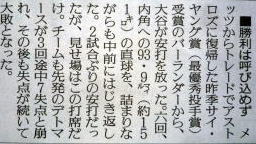 ■勝利は呼び込めず　メ
ッツからトレードでアスト
ロズに復帰した昨季サイ・
ヤング賞（最優秀投手賞）
受賞のバーランダーから、
大谷が安打を放った。六回、
内角への93・9㍄（約15
1㌔）の直球を、詰まりな
がらも中前にはじき返し
た。2試合ぶりの安打だっ
たが、見せ場はこの打席だ
け。チームも先発のデトマ
ースが3回途中7失点と崩
れ、その後も失点が続いて
大敗となった。